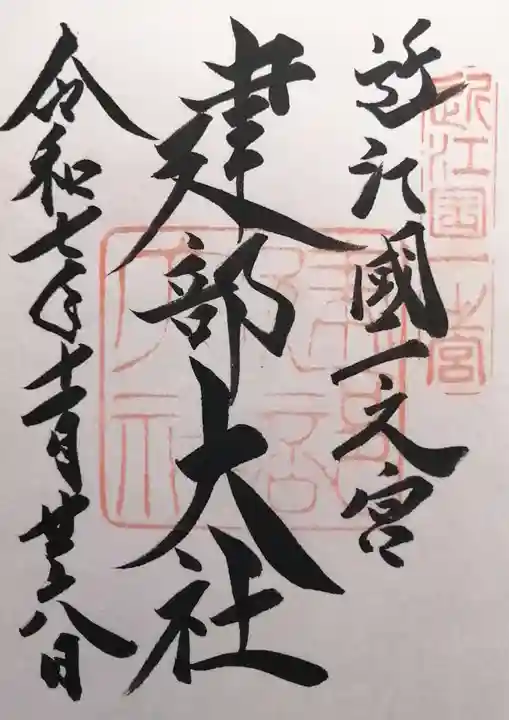 近江國一之宮
近江國一之宮
建部大社
令和七年十一月廿八日